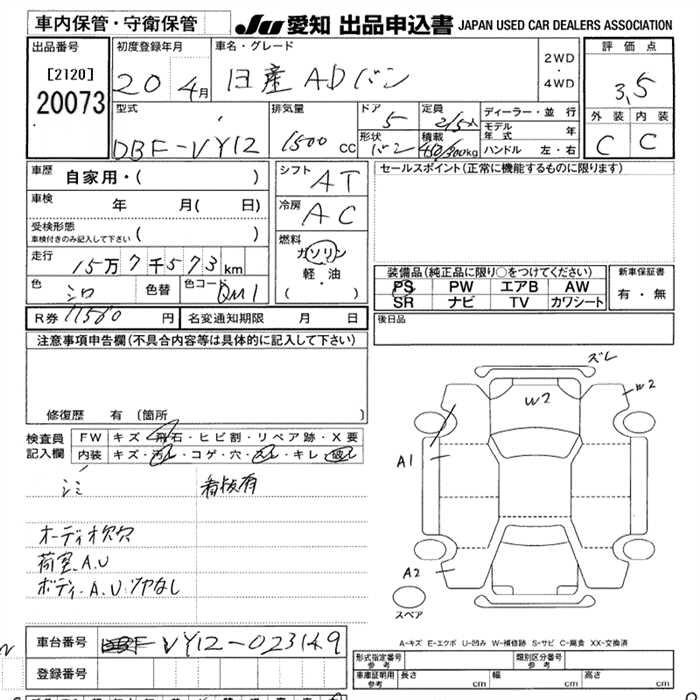 車内保管・守衛保管 JU 愛知 出品申込書 JAPAN USED CAR DEALERS ASSOCIATION
出品番号 初度登録年月 車名・グレード 2WD・4WD 評価点
[2120] 20 4月 日産 ADバン 3.5
20073
型式 排気量 ドア 5 定員 2/5人 ディーラー・並行 外装 内装
DBF-VY12 1500cc 形状 バン 積載 450/300kg モデル年式 年 C C
ハンドル 左・右
車歴 自家用・( ) シフト AT セールスポイント(正常に機能するものに限ります)
車検 年 月( 日) 冷房 AC
受検形態 車検付きのみ記入して下さい ( )
燃料 ガソリン 軽・油 ( )
走行 15万7千573km
装備品(純正品に限り○をつけてください) 新車保証書
PS PW エアB AW 有・無
SR ナビ TV カワシート
色 シロ 色替 色コード QM1
R券 11580円 名変通知期限 月 日 後日品
注意事項申告欄(不具合内容等は具体的に記入して下さい)
修復歴 有 (箇所 )
検査員記入欄 FW キズ・飛石・ヒビ割・リペア跡・X要
内装 キズ・汚レ・コゲ・穴・スレ・キレ・破レ
シミ 看板有
オーディオ欠欠
荷室A.U
ボディ・A.U ツヤなし
ズレ
W2 W2
A1
A2
スペア
A-キズ E-エクボ U-凹み W-補修跡 S-サビ C-腐食 XX-交換済
車台番号 VY12-023149
登録番号
形式指定番号 参考 類別区分番号 参考
車庫証明用 参考 長さ cm 幅 cm 高さ cm